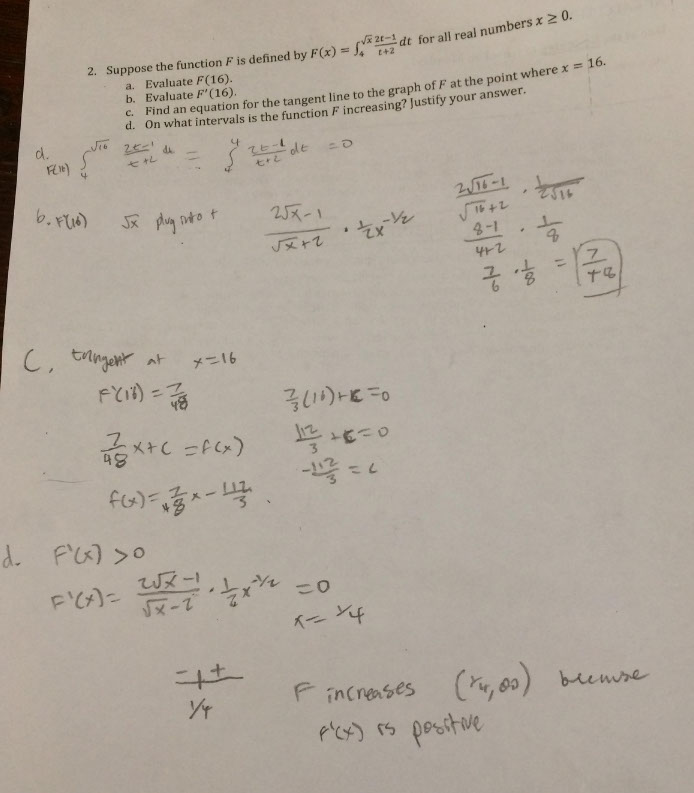 2. Suppose the function F is defined by F(x) = ∫₄^√x (2t−1)/(t+2) dt for all real numbers x ≥ 0.
a. Evaluate F(16).
b. Evaluate F'(16).
c. Find an equation for the tangent line to the graph of F at the point where x = 16.
d. On what intervals is the function F increasing? Justify your answer.
a. F(16) ∫₄^√16 (2t−1)/(t+2) dt = ∫₄^4 (2t−1)/(t+2) dt = 0
b. F'(16) √x plug into t (2√x−1)/(√x+2) · 1/2 x^−1/2
(2√16−1)/(√16+2) · 1/(2√16)
(8−1)/(4+2) · 1/8
7/6 · 1/8 = 7/48
C. tangent at x=16
F'(16) = 7/48
7/48 x+c = f(x)
f(x) = 7/48 x − 112/3.
7/3 (16)+c=0
112/3 +c=0
−112/3 = c
d. F'(x) >0
F'(x) = (2√x−1)/(√x−2) · 1/2 x^−1/2 = 0
x= 1/4
− | +
1/4
F increases (1/4, ∞) because
F'(x) is positive